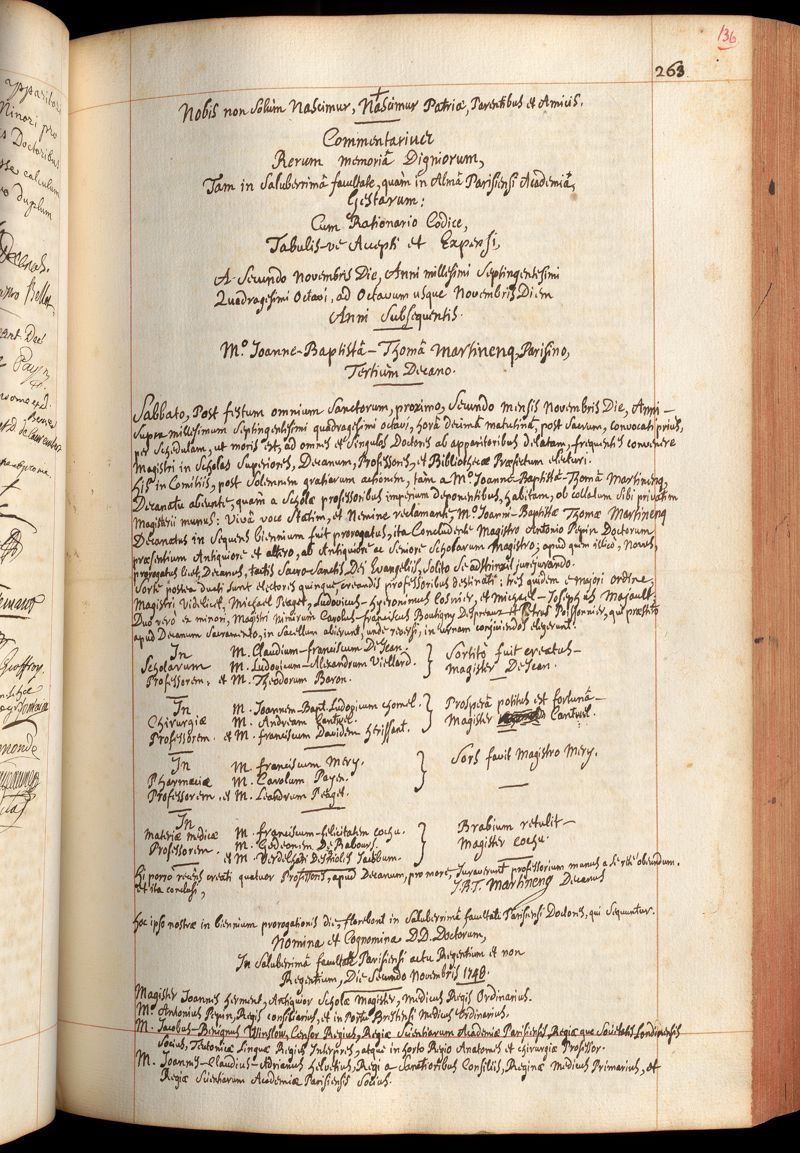 136
263
Nobis non Solùm Nascimur, Nascimur Patriæ, Parentibus et Amicis.
Commentarius
Rerum memoriâ Digniorum,
Tam in Saluberrimâ facultate, quàm in Almâ Parisiensi Academiâ,
Gestarum:
Cum Rationario Codice,
Tabulis-ve Accepti et Expensi,
A Secundo Novembris Die, Anni millesimi Septingentesimi
Quadragesimi Octavi, ad Octavum usque Novembris Diem
Anni Subsequentis.
M.º Joanne-Baptistâ-Thomâ Martinenq, Parisino,
Tertiùm Decano.
Sabbato, Post festum omnium Sanctorum, proximo, Secundo mensis Novembris Die, Anni-
Supra millesimum Septingentesimi quadragesimi octavi, horâ decimâ matutinâ, post Sacrum, convocati priùs,
per Schedulam, ut moris est, ad omnes et Singulos Doctores ab apparitoribus delatam, frequentes convenere
Magistri in Scholas Superiores, Decanum, Professores, et Bibliothecæ Præfectum electuri.
His in Comitiis, post Solemnem gratiarum actionem, tàm a M.º Joanne-Baptistâ-Thomâ Martinenq,
Decanatu abeunte, quàm a Scholæ professoribus imperium deponentibus, habitam, ob collatum Sibi privatim
Magisterii munus: Vivâ voce Statim, et Nemine reclamante, M.º Joanni-Baptistæ Thomæ Martinenq
Decanatus in Sequens biennium fuit prorogatus, ita Concludente Magistro Antonio Pepin Doctorum
præsentium Antiquiore et altero, ab Antiquiore ac Seniore Scholarum Magistro; apud quem illicò, Novus,
prorogatus licet, Decanus, tactis Sacro-Sanctis Dei Evangeliis, Solito Se adstrinxit jurejurando.
Sorte postea ducti Sunt electores quinque, creandis professoribus destinati: tres quidem e majori ordine,
Magistri Videlicet, Michael Peaget, Ludovicus-Hyeronimus Cosnier, et Michael-Josephus Majault;
Duo verò ex minori, Magistri nimirùm Carolus-franciscus Boutigny Despreaux et Petrus Poissonnier, qui præstito
apud Decanum Sacramento, in Sacellum abierunt, unde reversi, in urnam conjiciendos elegerunt:
In M. Claudium-franciscum De Jean. } Sortitò fuit creatus-
Scholarum M. Ludovicum-Alexandrum Viellard. Magister De Jean.
Professorem, et M. Theodorum Baron.
In M. Joannem-Bapt. Ludovicum Chomel. } Prosperâ potitus est fortunâ-
Chirurgiæ M. Andream Cantwel. Magister Cantwel.
Professorem et M. franciscum Davidem Herissant.
In M. franciscum Mery. } Sors favit Magistro Mery.
Pharmaciæ M. Carolum Payen.
Professorem, et M. Leandrum Peaget.
In M. franciscum-felicitatem Cochu. } Brabium retulit-
Materiæ medicæ M. Gedeonem De Rabours. Magister Cochu.
Professorem et M. Verdelhan Desmoles Jacobum.
Hi porro recens creati quatuor Professores, apud Decanum, pro more, Juraverunt professorium munus a Se rite obeundum.
et ita conclusi,
J.B.T. Martinenq Decanus
Hoc ipso nostræ in biennium prorogationis die, florebant in Saluberrimâ facultate Parisiensi Doctores, qui Sequuntur.
Nomina et Cognomina D.D. Doctorum,
In Saluberrimâ facultate Parisiensi actu Regentium et non
Regentium, Die Secundo Novembris 1748.
Magister Joannes Herment, Antiquior Scholæ Magister, Medicus Regis Ordinarius.
M. Antonius Pepin, Regis consiliarius, et in Portu Brestensi Medicus Ordinarius.
M. Jacobus-Benignus Winslow, Censor Regius, Regiæ Scientiarum Academiæ Parisiensis, Regiæ que Societatis Londinensis
Socius, Teutonicæ Linguæ Regius Interpres, atque in horto Regio Anatomes et chirurgiæ Professor.
M. Joannes-Claudius-Adrianus Helvetius, Regi a Sanctioribus Consiliis, Reginæ Medicus Primarius, et
Regiæ Scientiarum Academiæ Parisiensis Socius.